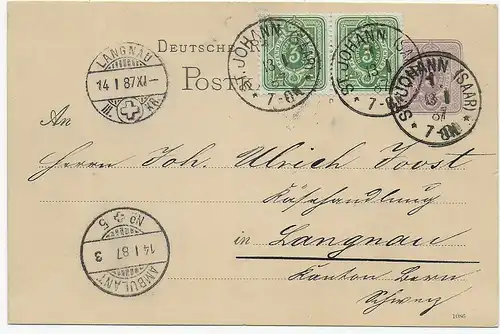 DEUTSCHE
POSTK
ST. JOHANN (SAAR)
13 1
87
7-8N
ST. JOHANN (SAAR)
13 1
87
7-8N
ST. JOHANN (SAAR)
13 1
87
7-8N
LANGNAU
14 I 87 XI–
III.
An
Herrn Joh. Ulrich Joost
Käsehandlung
in Langnau
Kanton Bern
Schweiz
No 5
14 I 87
3
AMBULANT
1086